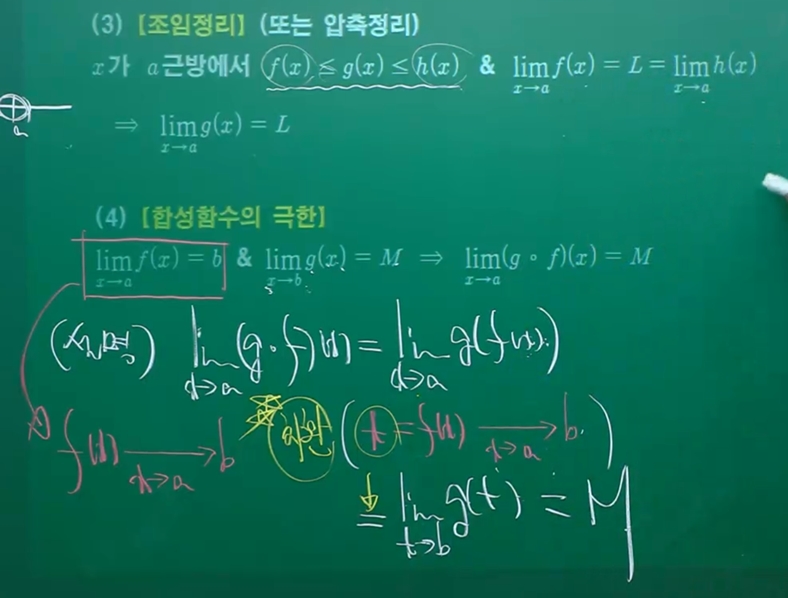 (3) [조임정리] (또는 압축정리)
x가 a근방에서 f(x) ≤ g(x) ≤ h(x) & lim_{x→a} f(x) = L = lim_{x→a} h(x)
a
⇒ lim_{x→a} g(x) = L
(4) [합성함수의 극한]
lim_{x→a} f(x) = b & lim_{x→b} g(x) = M ⇒ lim_{x→a} (g ∘ f)(x) = M
lim_{x→a} (g ∘ f)(x) = lim_{x→a} g(f(x))
f(x) →_{x→a} b 치환 ( t = f(x) →_{x→a} b )
= lim_{t→b} g(t) = M